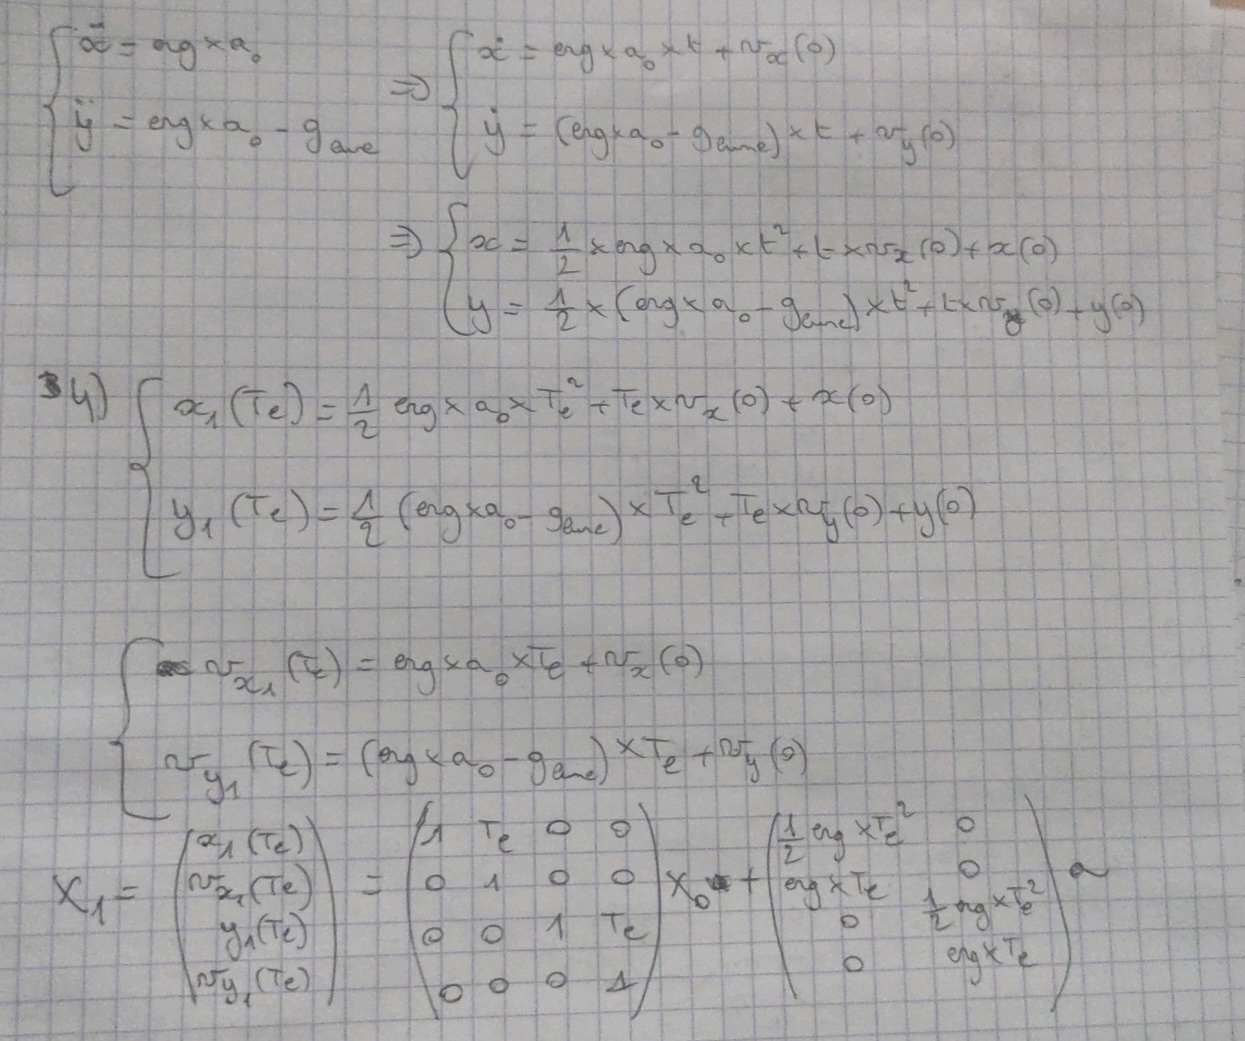 { ẍ = erg × a₀ ⇒ { ẋ = erg × a₀ × t + vₓ(0)
ÿ = erg × a₀ - g_lune ẏ = (erg × a₀ - g_lune) × t + v_y(0)
⇒ { x = 1/2 × erg × a₀ × t² + t × vₓ(0) + x(0)
y = 1/2 × (erg × a₀ - g_lune) × t² + t × v_y(0) + y(0)
4) { x₁(Te) = 1/2 erg × a₀ × Te² + Te × vₓ(0) + x(0)
y₁(Te) = 1/2 (erg × a₀ - g_lune) × Te² + Te × v_y(0) + y(0)
{ v_x₁(Te) = erg × a₀ × Te + vₓ(0)
v_y₁(Te) = (erg × a₀ - g_lune) × Te + v_y(0)
X₁ = ( x₁(Te) ; v_x₁(Te) ; y₁(Te) ; v_y₁(Te) ) = ( 1 Te 0 0 ; 0 1 0 0 ; 0 0 1 Te ; 0 0 0 1 ) X₀ + ( 1/2 erg × Te² 0 ; erg × Te 0 ; 0 1/2 erg × Te² ; 0 erg × Te ) a